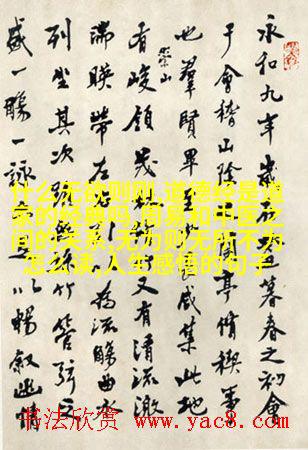 永和九年歲在癸丑暮春之初會
于會稽山陰之蘭亭脩稧事
也羣賢畢至少長咸集此地
有崇山峻領茂林脩竹又有清流激
湍暎帶左右引以為流觴曲水
列坐其次雖無絲竹管弦之
盛一觴一詠亦足以暢敘幽情
什么无欲则刚,道德经是道
家的经典吗,周易和中医之
间的关系,无为则无所不为
怎么读,人生感悟的句子
书法欣赏 www.yac8.com